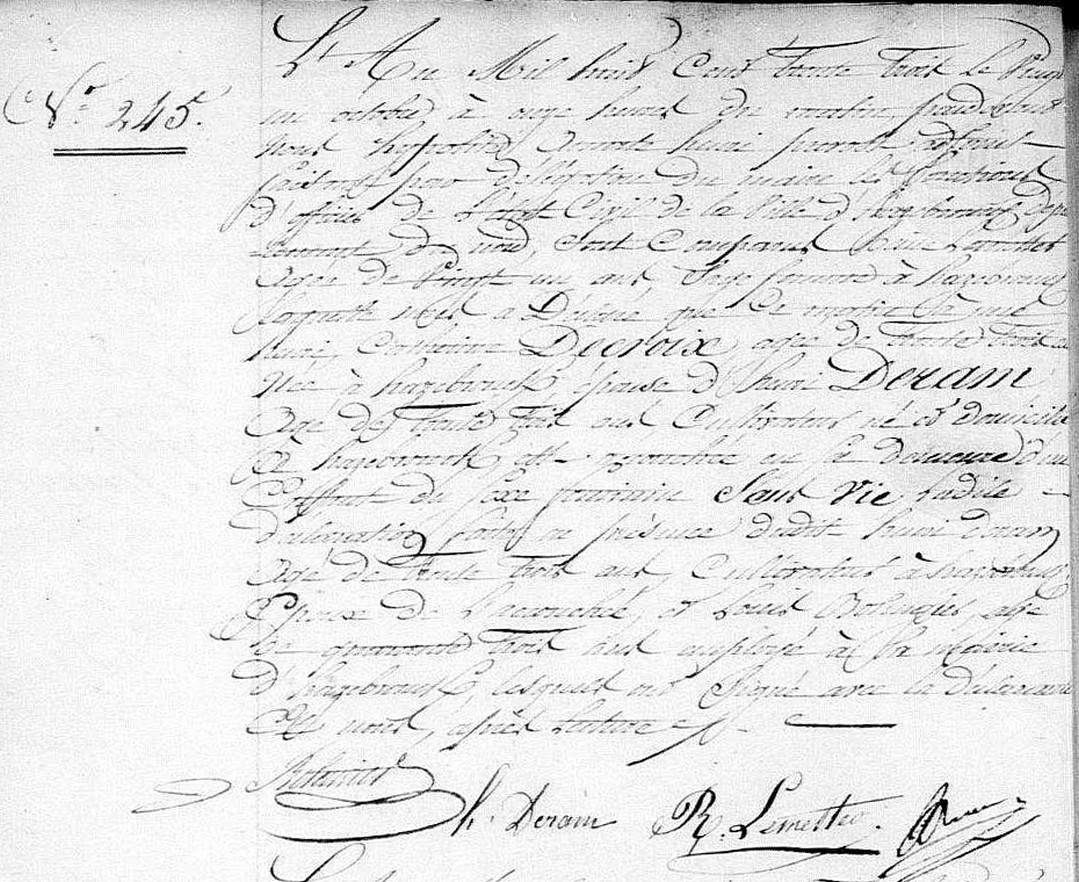 N° 245.
L'An Mil huit Cent trente trois le Vingt
un octobre, à onze heures du matin, pardevant
Nous hyppolite henri adjoint
faisant par délégation du maire les fonctions
d'officier de l'état Civil de la Ville d'hazebrouck, dépar
tement du nord, sont comparus
agée de Vingt un ans, Sage femme à hazebrouck
laquelle nous a Déclaré que Ce matin à
Catherine Decroix, agée de trente trois ans
Née à hazebrouck, épouse d'henri Deram
agé de trente trois ans Cultivateur né et domicilié
à hazebrouck, est accouchée en sa demeure d'un
Enfant du sexe féminin Sans Vie, ladite
déclaration faite en présence dudit henri Deram
agé de trente trois ans, Cultivateur à hazebrouck,
Epoux de l'accouchée, et Louis agé
de quarante trois ans employé à la mairie
d'hazebrouck, lesquels ont Signé avec la déclarante
Et nous, après lecture
h. Deram R. Lemettre.